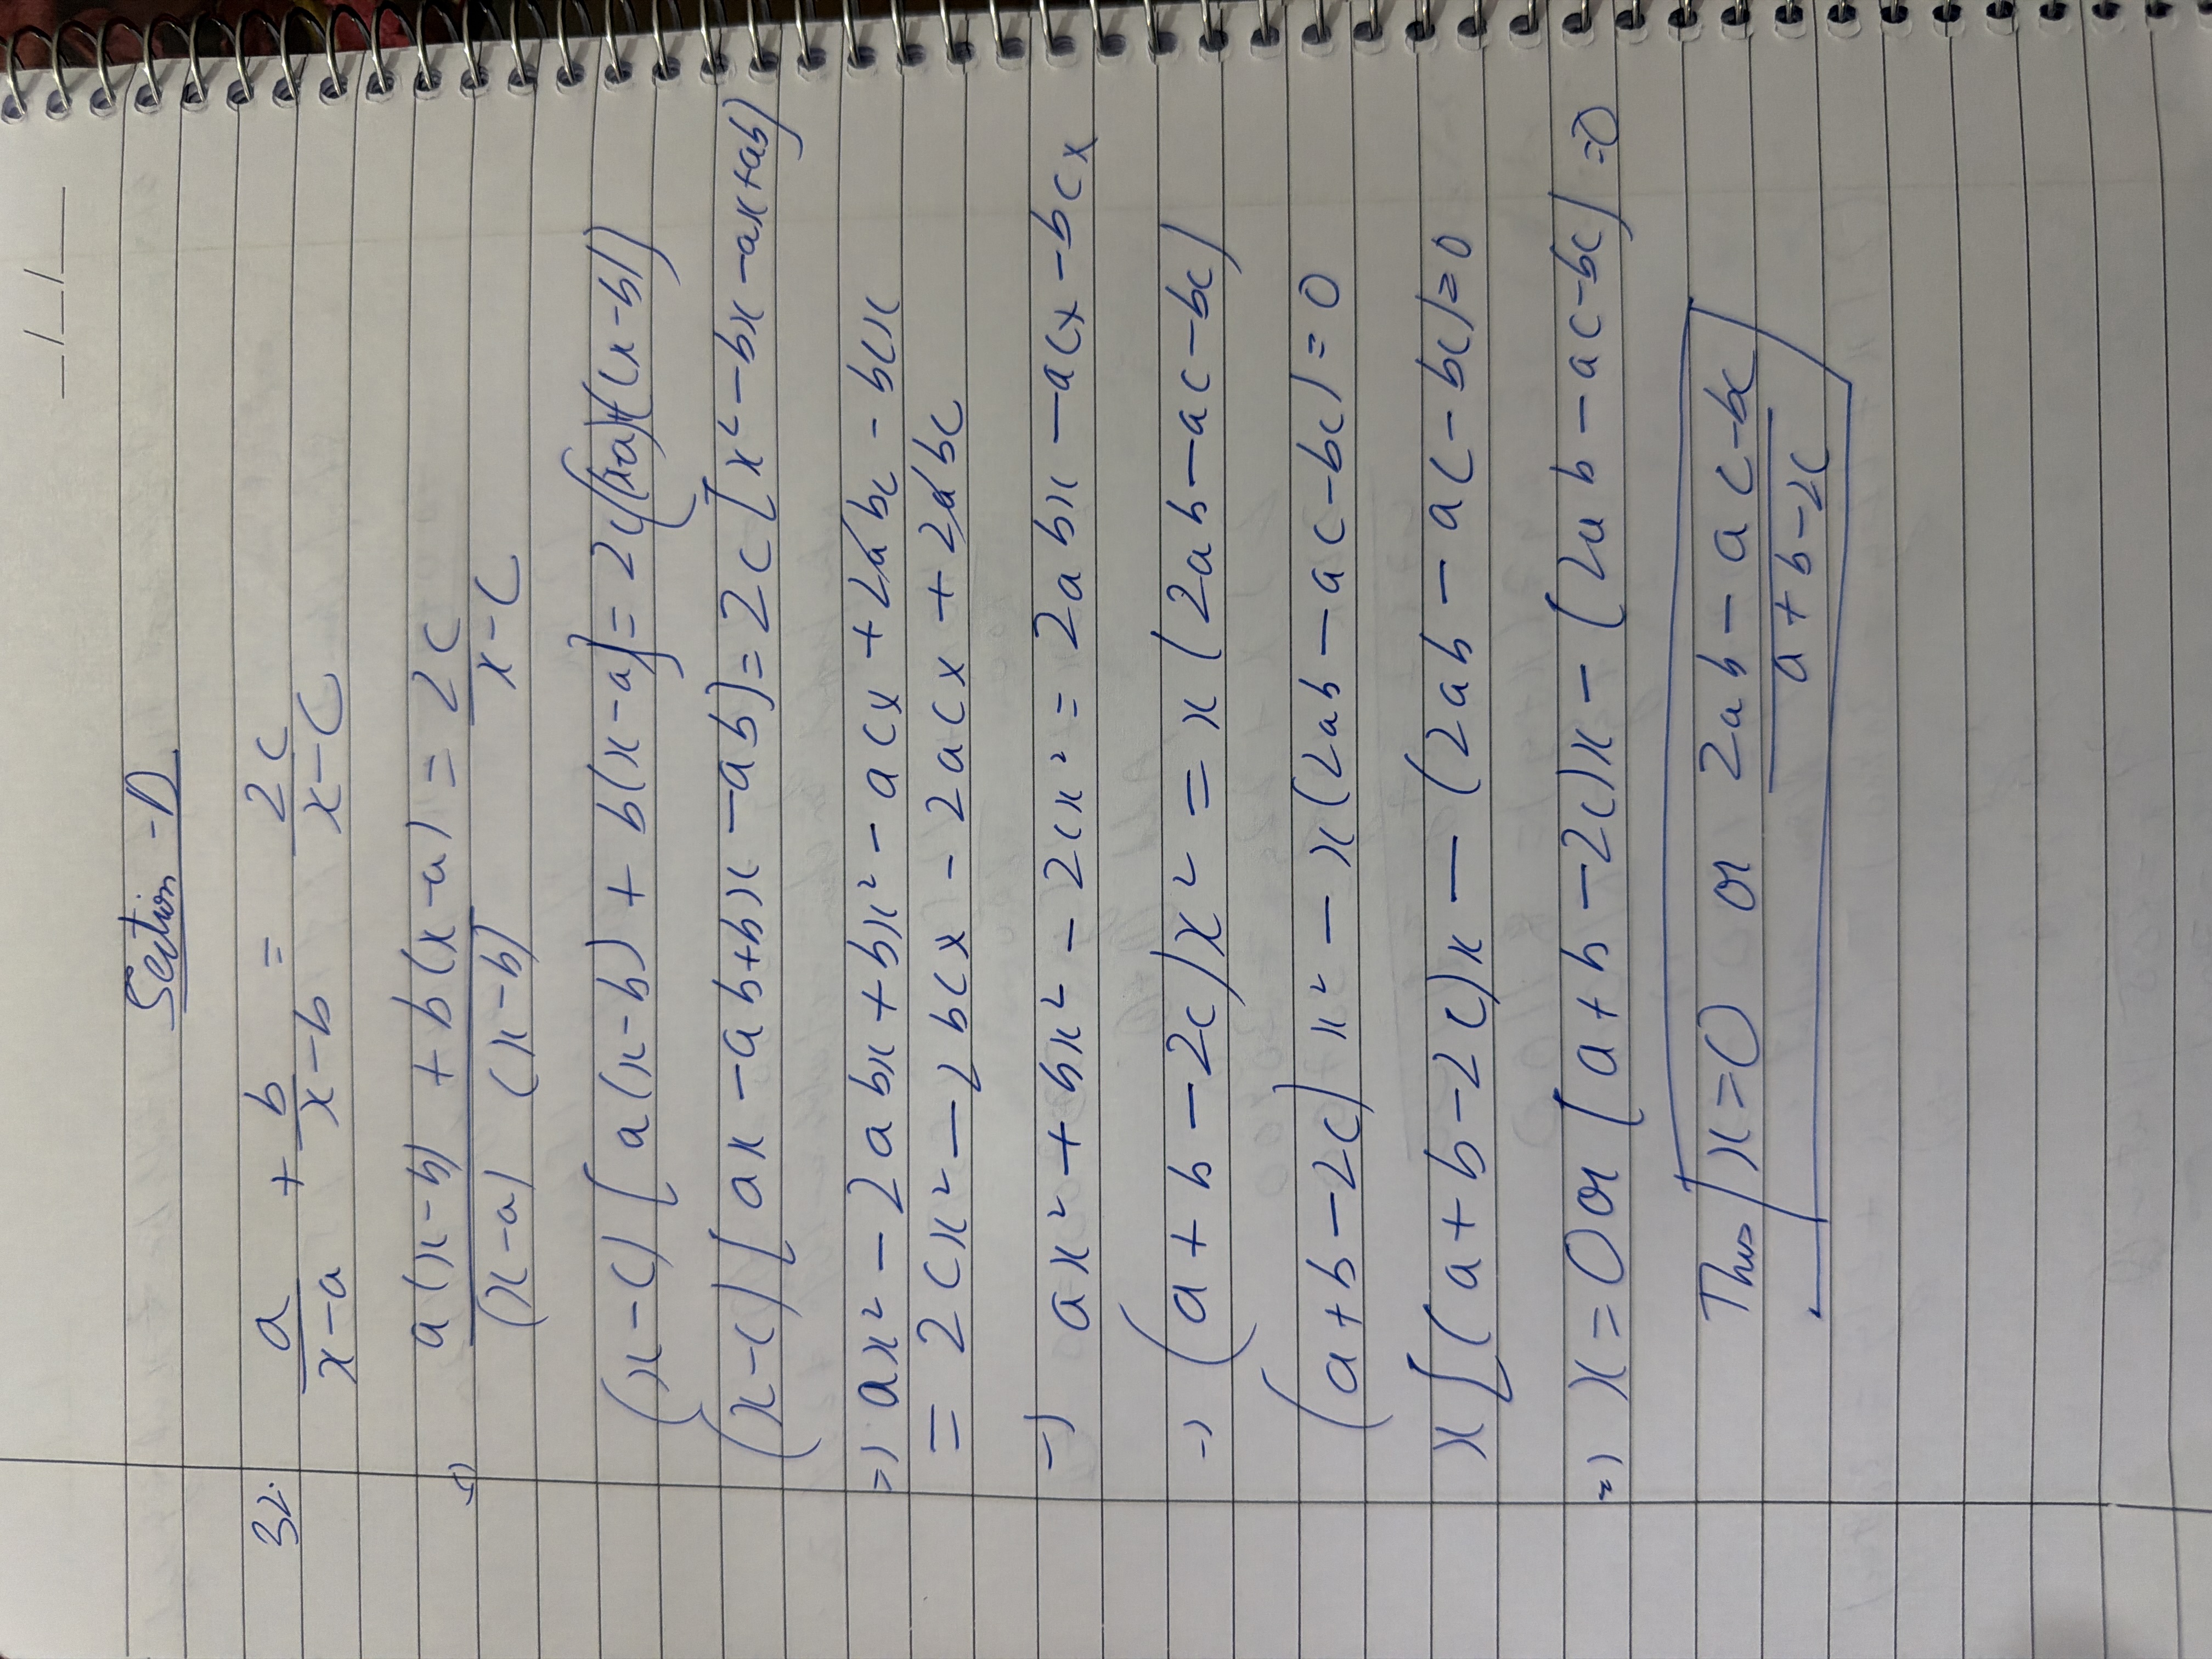 __/__/__
Section -D
32. a/(x-a) + b/(x-b) = 2c/(x-c)
=) (a(x-b) + b(x-a))/((x-a) (x-b)) = 2c/(x-c)
(x-c) [a(x-b) + b(x-a)] = 2c((x-a)(x-b))
(x-c) [ax -ab+bx -ab] = 2c [x² -bx -ax+ab]
=) ax² - 2abx + bx² - acx + 2abc - bcx
= 2cx² - 2bcx - 2acx + 2abc
=) ax² + bx² - 2cx² = 2abx - acx - bcx
=) (a+b-2c)x² = x(2ab-ac-bc)
(a+b-2c)x² - x(2ab-ac-bc) = 0
x[(a+b-2c)x - (2ab-ac-bc)] = 0
=) x=0 or [a+b-2c)x - (2ab-ac-bc) =0
Thus x=0 or (2ab-ac-bc)/(a+b-2c)